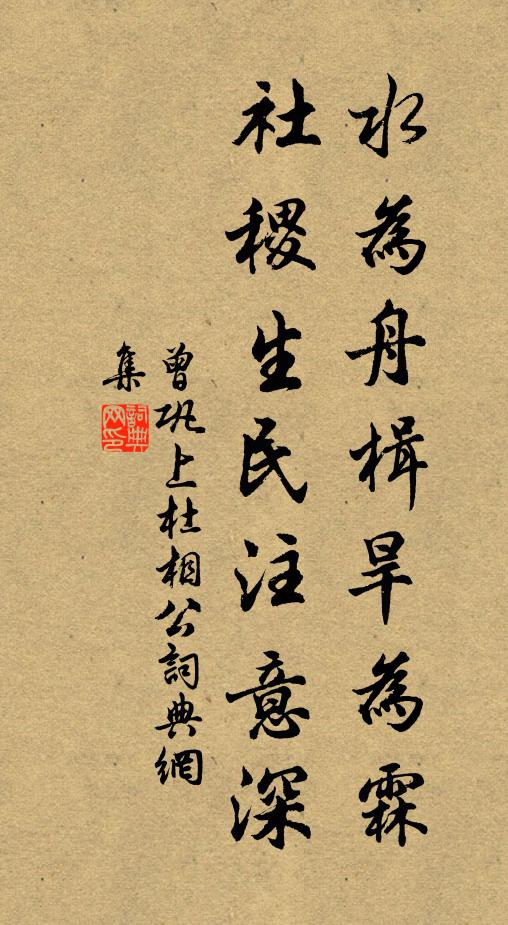 水為舟楫旱為霖
社稷生民注意深
曾巩上杜相公詞典網
集
詞典
网印